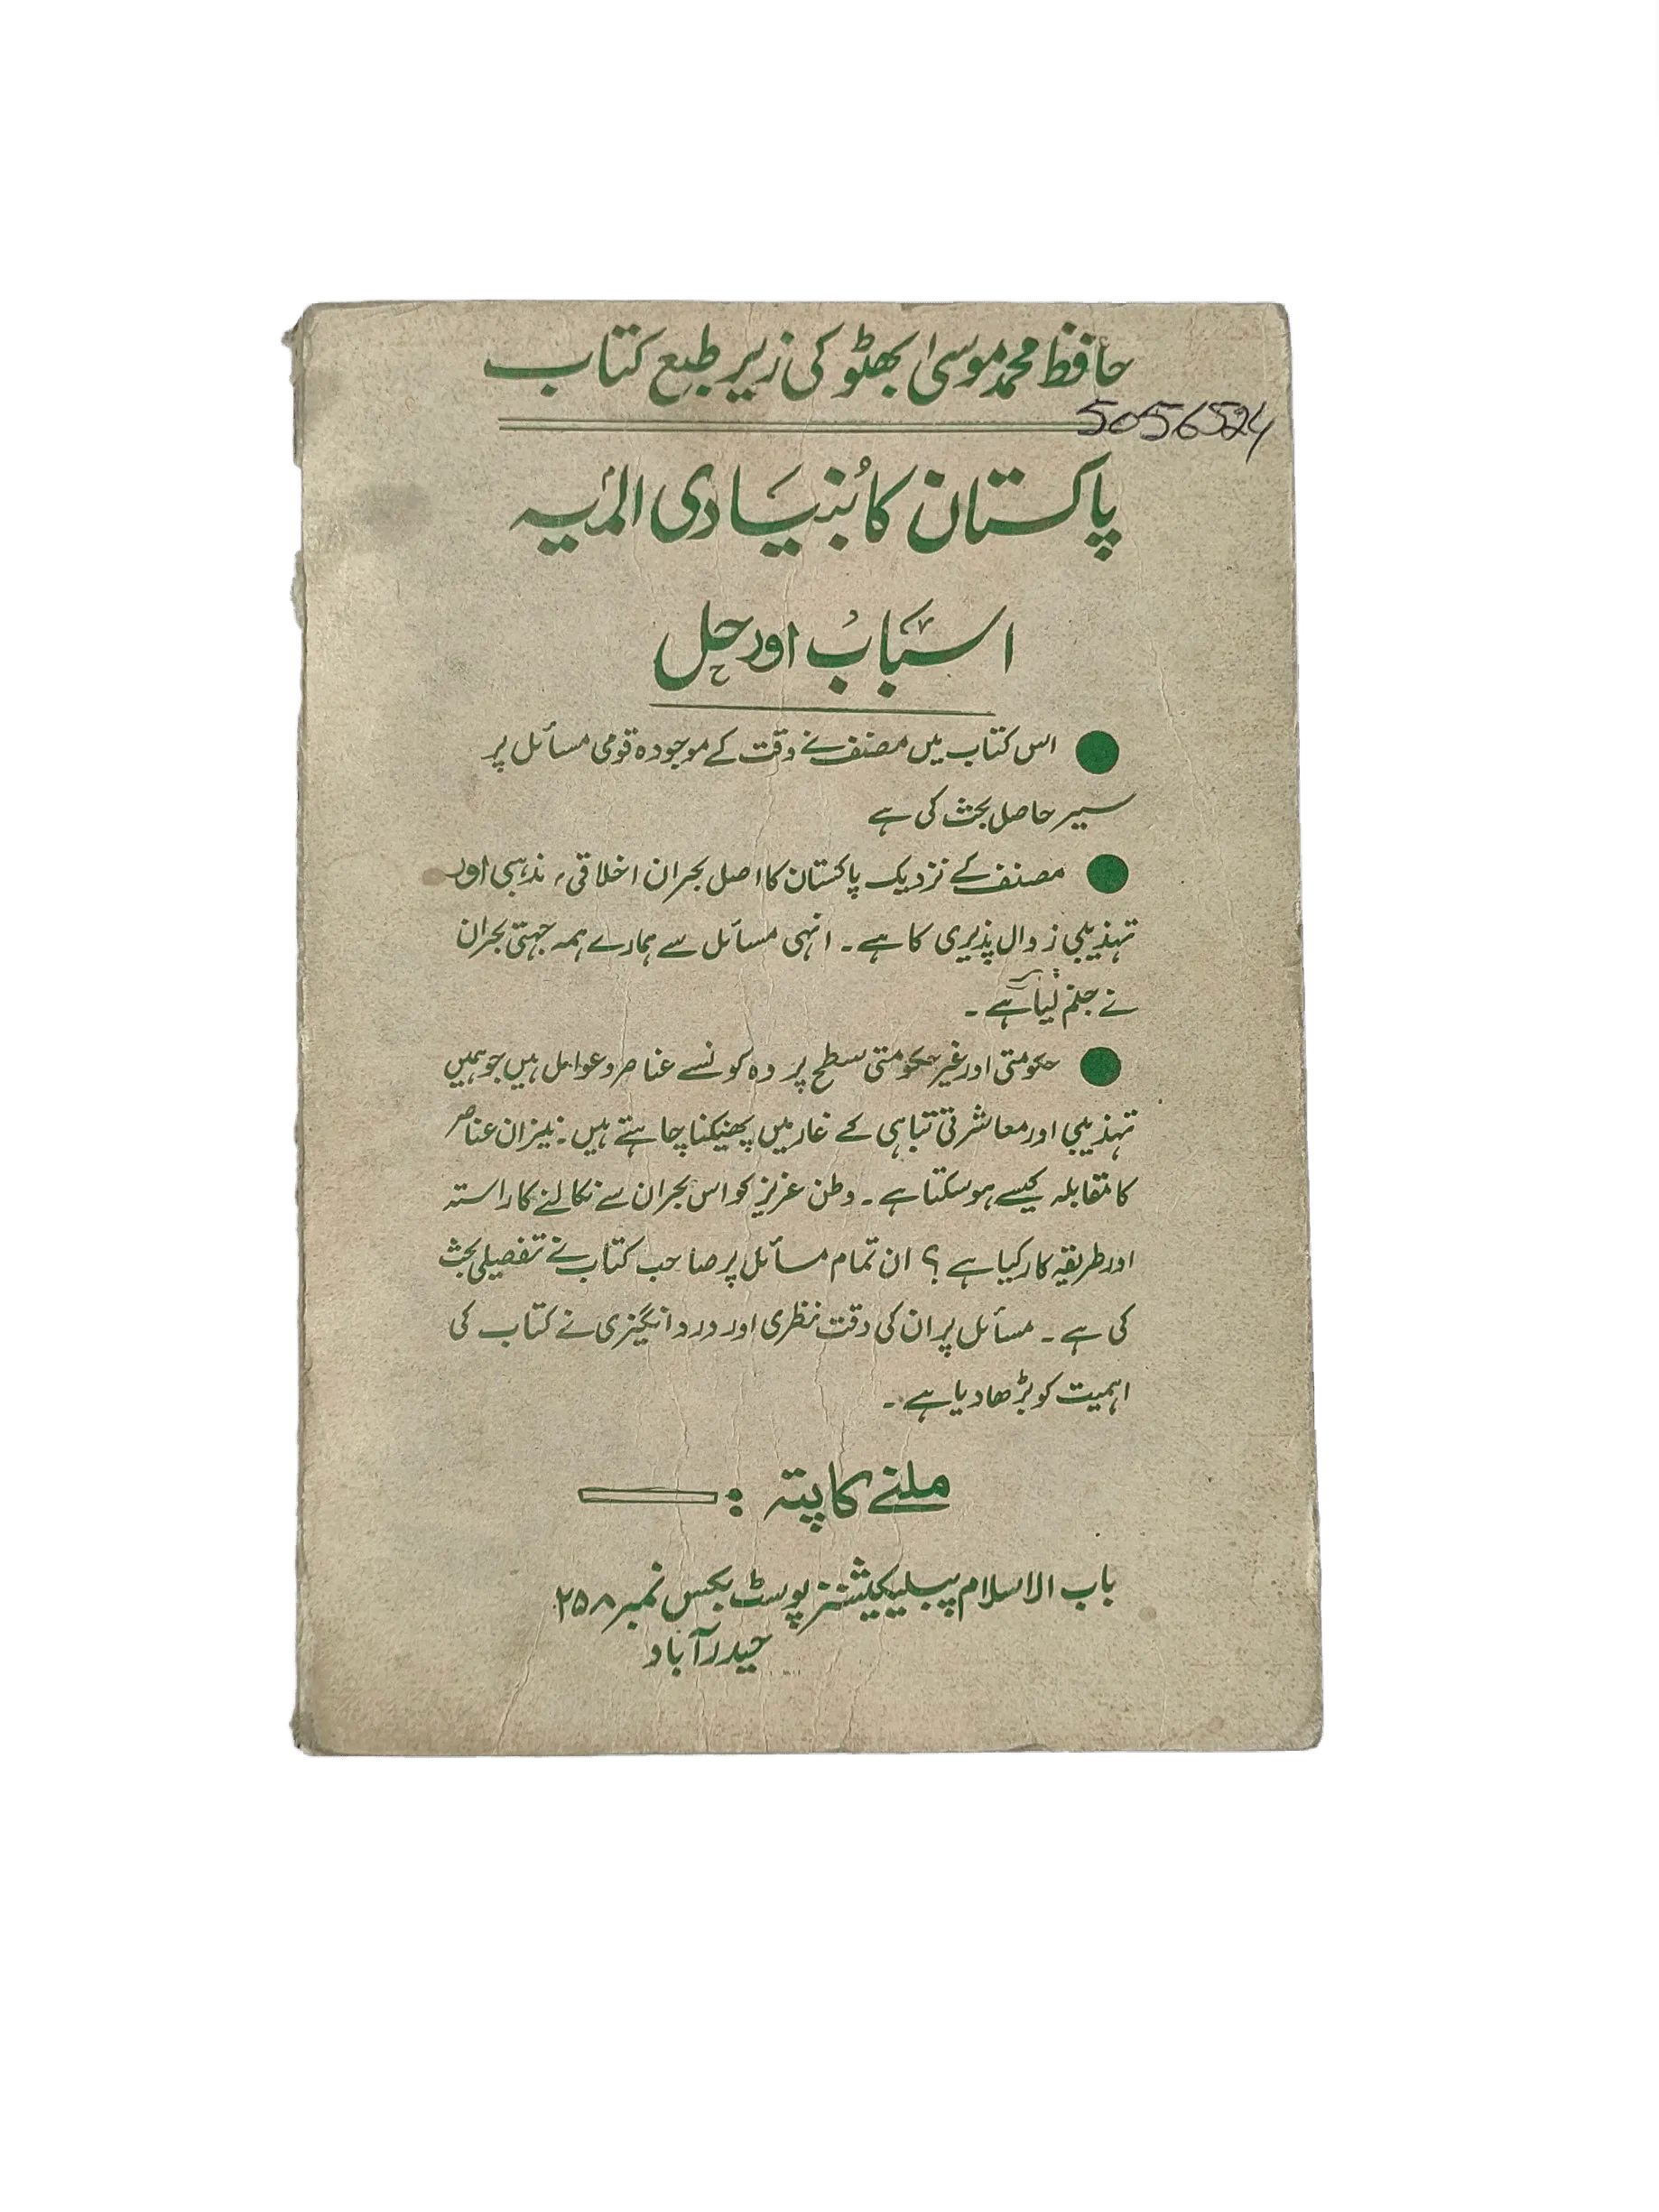 حافظ محمد موسیٰ بھٹو کی زیر طبع کتاب
5056524
پاکستان کا بُنیادی المیہ
اسباب اور حل
● اس کتاب میں مصنف نے وقت کے موجودہ قومی مسائل پر
سیر حاصل بحث کی ہے
● مصنف کے نزدیک پاکستان کا اصل بحران اخلاقی، مذہبی اور
تہذیبی زوال پذیری کا ہے۔ انہی مسائل سے ہمارے ہمہ جہتی بحران
نے جنم لیا ہے۔
● حکومتی اور غیر حکومتی سطح پر وہ کونسے عناصر و عوامل ہیں جو ہمیں
تہذیبی اور معاشرتی تباہی کے غار میں پھینکنا چاہتے ہیں۔ نیز ان عناصر
کا مقابلہ کیسے ہو سکتا ہے۔ وطن عزیز کو اس بحران سے نکالنے کا راستہ
اور طریقہ کار کیا ہے؟ ان تمام مسائل پر صاحب کتاب نے تفصیلی بحث
کی ہے۔ مسائل پر ان کی دقت نظری اور درد انگیزی نے کتاب کی
اہمیت کو بڑھا دیا ہے۔
ملنے کا پتہ :
باب الاسلام پبلیکیشنز پوسٹ بکس نمبر ۲۵۸
حیدرآباد